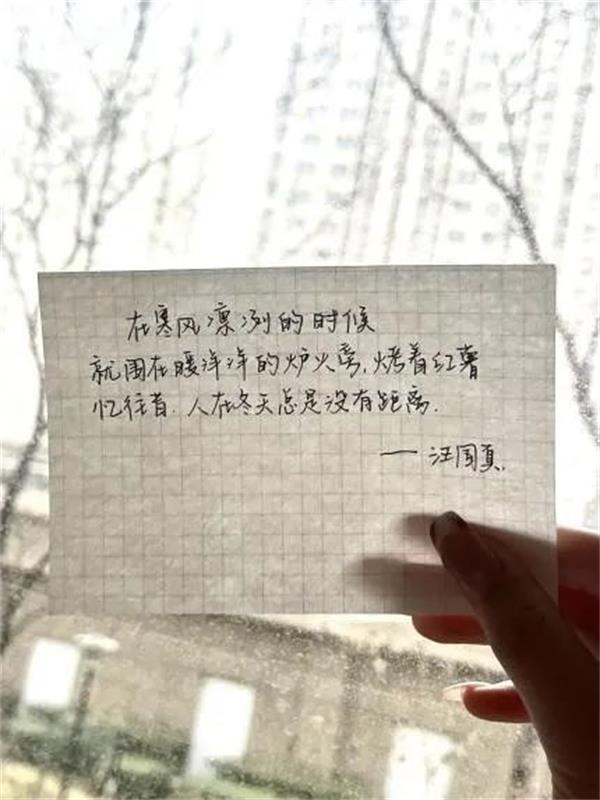 在寒风凛冽的时候
就围在暖洋洋的炉火旁,烤着红薯
忆往昔.人在冬天总是没有距离.
——汪国真.